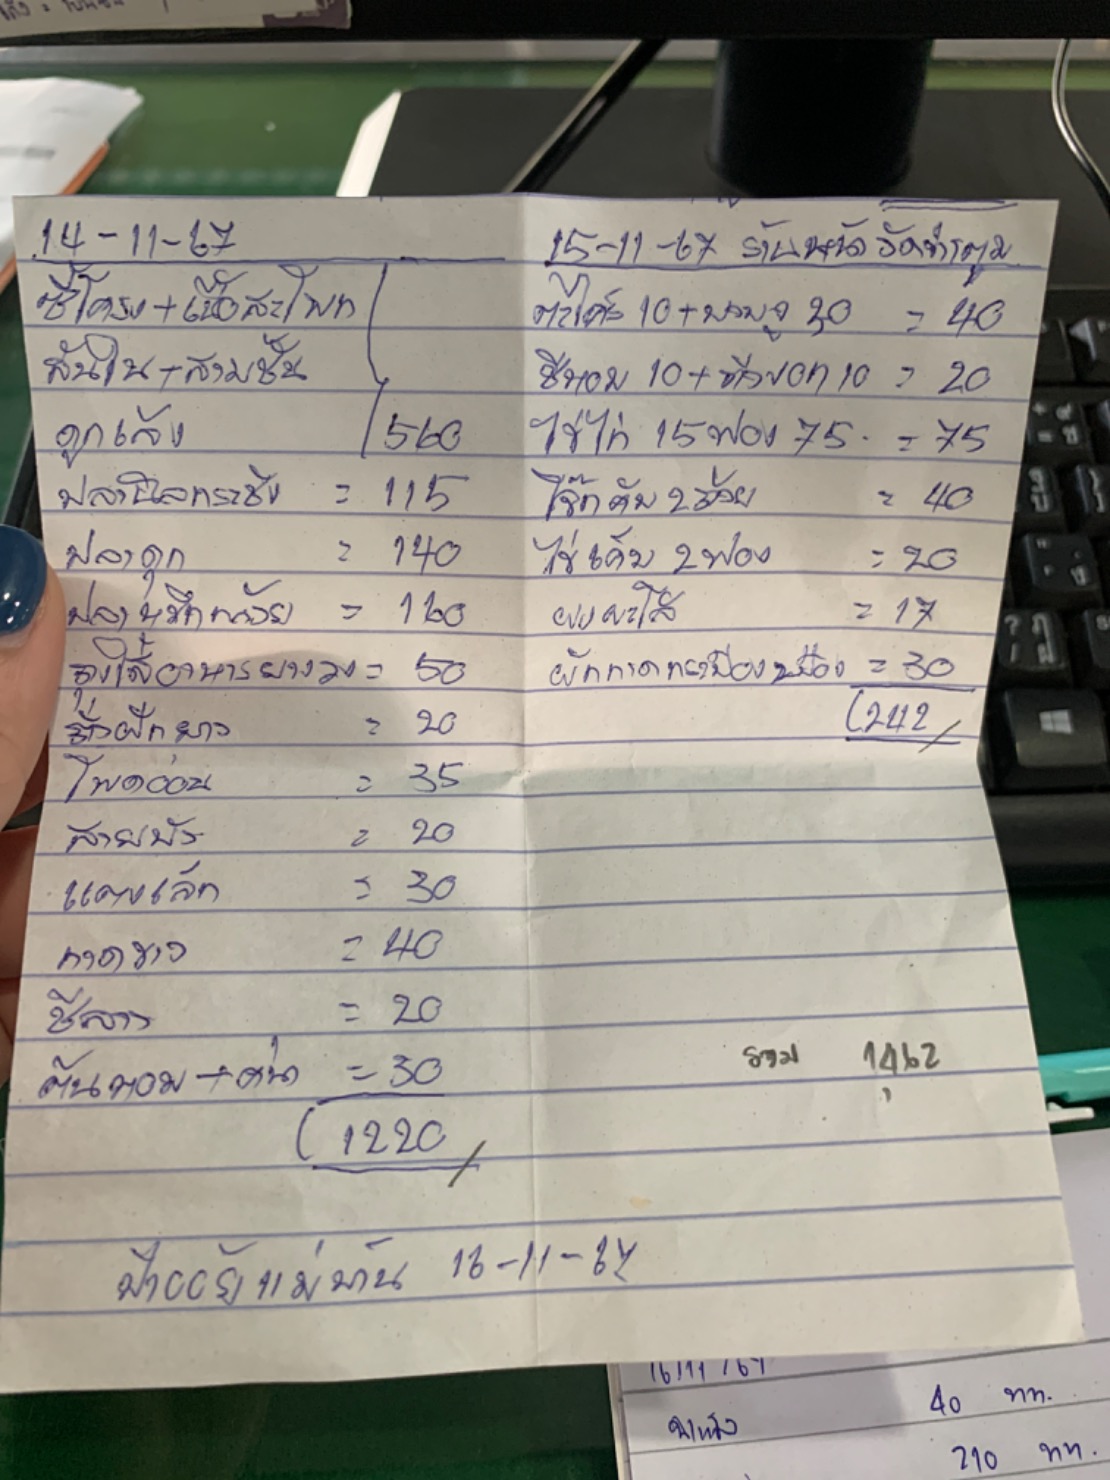 14-11-67
ซี่โครง+เนื้อสะโพก
สันใน+สามชั้น
ดูกเล้ง 560
ปลานิลกระชัง = 115
ปลาดุก = 140
ปลาหมึกกล้วย = 160
ถุงใส่อาหารยางวง = 50
ถั่วฝักยาว = 20
โพดอ่อน = 35
สายบัว = 20
แตงเล็ก = 30
กาดขาว = 40
ชีลาว = 20
ต้นหอม+คะน้า = 30
1220
ป้าออยแม่บ้าน 16-11-67
15-11-67 ร้านหนัด
ตะไคร้ 10+มะนาว 30 = 40
ชีหอม 10+ 10 = 20
ไข่ไก่ 15 ฟอง 75 = 75
โจ๊กคัพ 2 ถ้วย = 40
ไข่เค็ม 2 ฟอง = 20
ผงพะโล้ = 17
ผักกาดกระป๋อง 2 ป๋อง = 30
242
รวม 1462
16/11/67
40 บาท.
210 บาท.